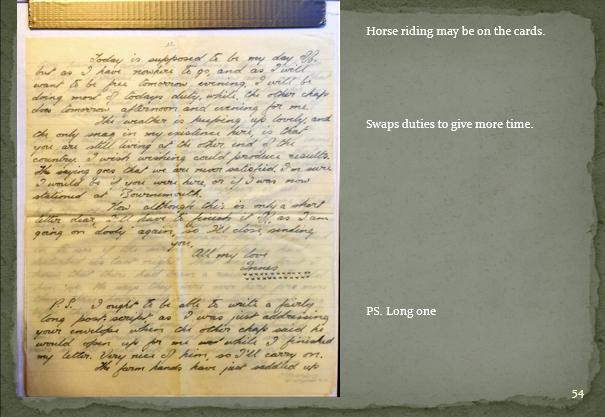 Today is supposed to be my day off,
but as I have nowhere to go, and as I will
want to be free tomorrow evening, I will be
doing most of todays duty, while the other chap
does tomorrow afternoon and evening for me.
The weather is keeping up lovely, and
the only snag in my existence here, is that
you are still living at the other end of the
country. I wish wishing could produce results.
The saying goes that we are never satisfied, I'm sure
I would be if you were here, or if I was now
stationed at Bournemouth.
Now although this is only a short
letter dear, I'll have to finish it off, as I am
going on 'dody' again, so I'll close, sending
you,
All my love
Innes
P.S. I ought to be able to write a fairly
long post-script as I was just addressing
your envelope when the other chap said he
would open up for me while I finished
my letter. Very nice of him, so I'll carry on.
The farm hands have just saddled up
Horse riding may be on the cards.
Swaps duties to give more time.
PS. Long one
54